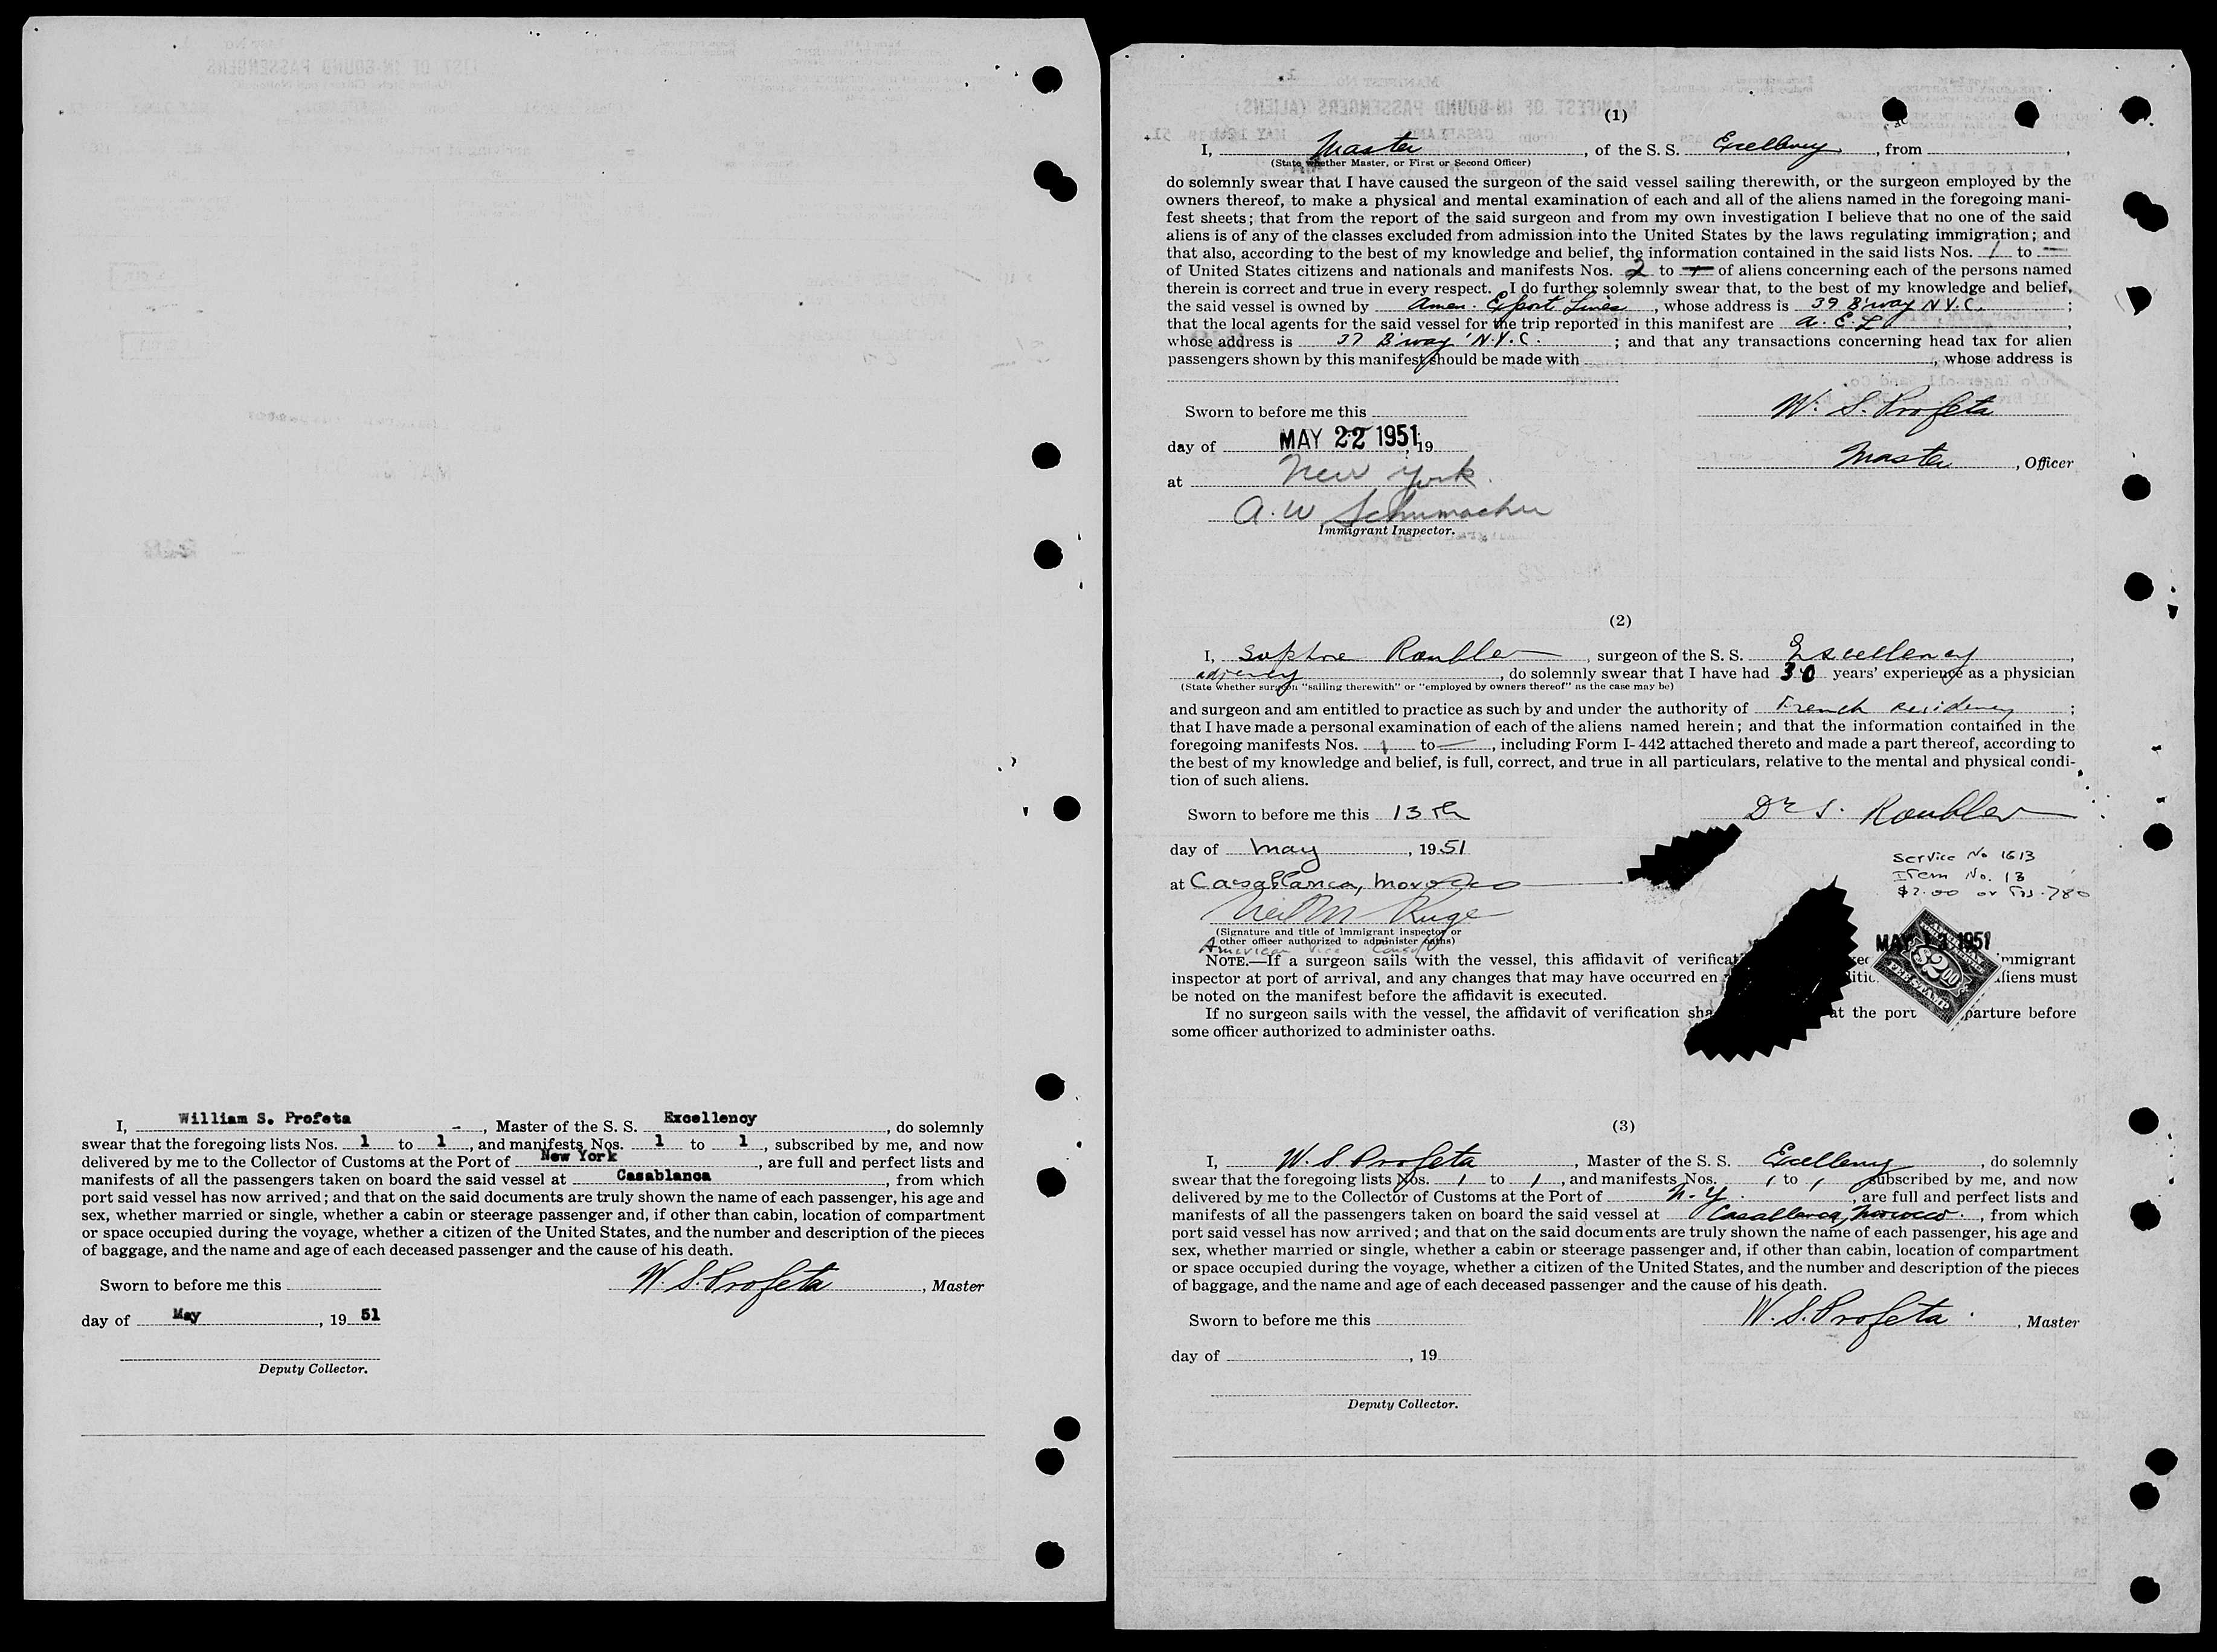 I, William S. Profeta - , Master of the S. S. Excellency , do solemnly
swear that the foregoing lists Nos. 1 to 1 , and manifests Nos. 1 to 1 , subscribed by me, and now
delivered by me to the Collector of Customs at the Port of New York , are full and perfect lists and
manifests of all the passengers taken on board the said vessel at Casablanca , from which
port said vessel has now arrived; and that on the said documents are truly shown the name of each passenger, his age and
sex, whether married or single, whether a cabin or steerage passenger and, if other than cabin, location of compartment
or space occupied during the voyage, whether a citizen of the United States, and the number and description of the pieces
of baggage, and the name and age of each deceased passenger and the cause of his death.
Sworn to before me this
W. S. Profeta , Master
day of May , 19 51
Deputy Collector.
MANIFEST OF IN-BOUND PASSENGERS (ALIENS)
(1)
I, Master , of the S. S. Excellency , from ,
(State whether Master, or First or Second Officer)
do solemnly swear that I have caused the surgeon of the said vessel sailing therewith, or the surgeon employed by the
owners thereof, to make a physical and mental examination of each and all of the aliens named in the foregoing mani-
fest sheets; that from the report of the said surgeon and from my own investigation I believe that no one of the said
aliens is of any of the classes excluded from admission into the United States by the laws regulating immigration; and
that also, according to the best of my knowledge and belief, the information contained in the said lists Nos. 1 to —
of United States citizens and nationals and manifests Nos. 2 to — of aliens concerning each of the persons named
therein is correct and true in every respect. I do further solemnly swear that, to the best of my knowledge and belief,
the said vessel is owned by Amer. Export Lines , whose address is 39 B'way N.Y.C. ;
that the local agents for the said vessel for the trip reported in this manifest are A. E. L ,
whose address is 37 B'way N.Y.C. ; and that any transactions concerning head tax for alien
passengers shown by this manifest should be made with , whose address is
Sworn to before me this
W. S. Profeta
day of MAY 22 1951, 19
Master , Officer
at New York
A. W Schumacher
Immigrant Inspector.
(2)
I, Roubler , surgeon of the S. S. Excellency ,
, do solemnly swear that I have had 30 years' experience as a physician
(State whether surgeon "sailing therewith" or "employed by owners thereof" as the case may be)
and surgeon and am entitled to practice as such by and under the authority of French residency ;
that I have made a personal examination of each of the aliens named herein; and that the information contained in the
foregoing manifests Nos. 1 to — , including Form I-442 attached thereto and made a part thereof, according to
the best of my knowledge and belief, is full, correct, and true in all particulars, relative to the mental and physical condi-
tion of such aliens.
Sworn to before me this 13th
Dr S. Roubler
day of May , 1951
Service No 1613
Item No. 13
$2.00 or Frs. 780
at Casablanca, Morocco
Neil M Ruge
(Signature and title of immigrant inspector or
other officer authorized to administer oaths)
American Vice Consul
MAY 13 1951
$2.00
FEE STAMP
NOTE.—If a surgeon sails with the vessel, this affidavit of verificat immigrant
inspector at port of arrival, and any changes that may have occurred en aliens must
be noted on the manifest before the affidavit is executed.
If no surgeon sails with the vessel, the affidavit of verification sha at the port parture before
some officer authorized to administer oaths.
(3)
I, W. S. Profeta , Master of the S. S. Excellency , do solemnly
swear that the foregoing lists Nos. 1 to 1 , and manifests Nos. 1 to 1 , subscribed by me, and now
delivered by me to the Collector of Customs at the Port of N. Y. , are full and perfect lists and
manifests of all the passengers taken on board the said vessel at Casablanca, Morocco. , from which
port said vessel has now arrived; and that on the said documents are truly shown the name of each passenger, his age and
sex, whether married or single, whether a cabin or steerage passenger and, if other than cabin, location of compartment
or space occupied during the voyage, whether a citizen of the United States, and the number and description of the pieces
of baggage, and the name and age of each deceased passenger and the cause of his death.
Sworn to before me this
W. S. Profeta , Master
day of , 19
Deputy Collector.